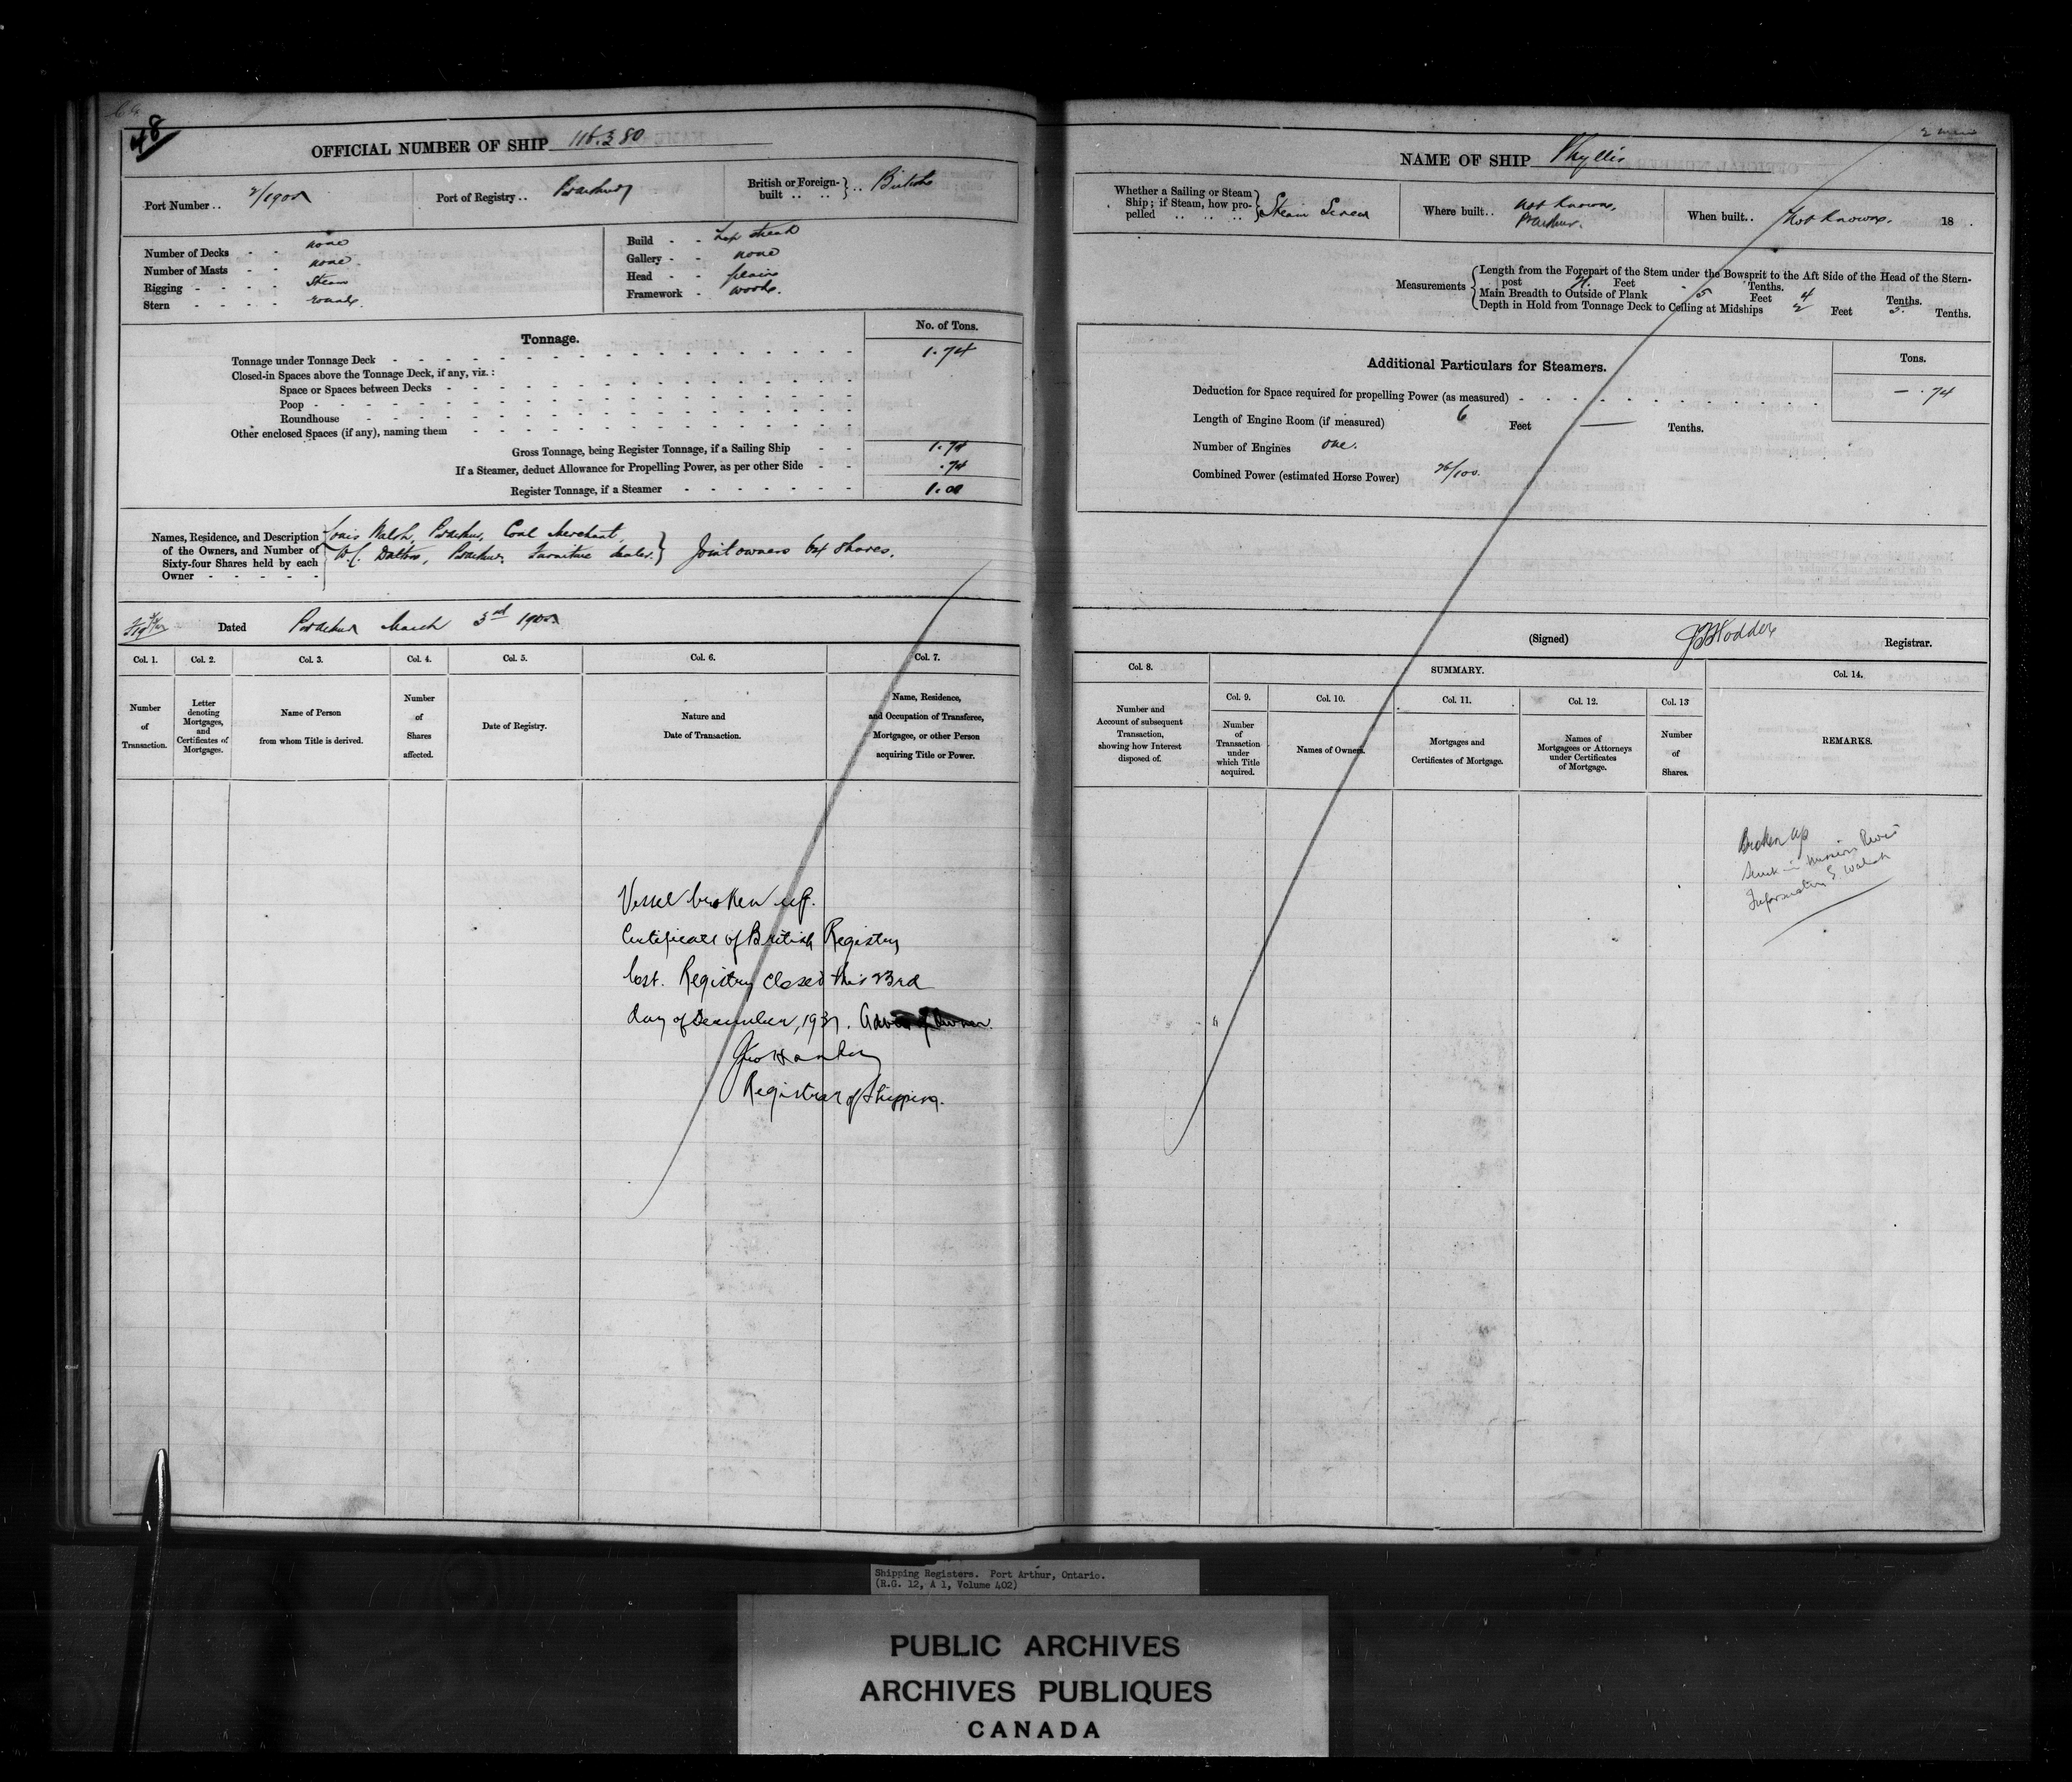 48
OFFICIAL NUMBER OF SHIP 116.380
Port Number .. 2/1905
Port of Registry ..
British or Foreign-built .. .. } .. British
Number of Decks - - none
Number of Masts - - none
Rigging - - - - Steam
Stern - - - - round
Build - - Lap streak
Gallery - - none
Head - - plain
Framework - wood.
Tonnage.
No. of Tons.
Tonnage under Tonnage Deck 1.74
Closed-in Spaces above the Tonnage Deck, if any, viz.:
Space or Spaces between Decks
Poop
Roundhouse
Other enclosed Spaces (if any), naming them
Gross Tonnage, being Register Tonnage, if a Sailing Ship 1.74
If a Steamer, deduct Allowance for Propelling Power, as per other Side .74
Register Tonnage, if a Steamer 1.00
Names, Residence, and Description of the Owners, and Number of Sixty-four Shares held by each Owner
Louis Walsh, Coal Merchant,
W.C. Dalton, Furniture dealer. } Joint owners 64 shares.
Dated March 3rd
Col. 1. Col. 2. Col. 3. Col. 4. Col. 5. Col. 6. Col. 7.
Number of Transaction.
Letter denoting Mortgages, and Certificates of Mortgages.
Name of Person from whom Title is derived.
Number of Shares affected.
Date of Registry.
Nature and Date of Transaction.
Name, Residence, and Occupation of Transferee, Mortgagee, or other Person acquiring Title or Power.
Vessel broken up.
Certificate of British Registry
lost. Registry closed this 23rd
day of December, 1937.
Registrar of Shipping.
NAME OF SHIP Phyllis
Whether a Sailing or Steam Ship; if Steam, how propelled .. .. .. } Steam Screw
Where built .. not known,
When built .. Not known. 18 .
Measurements
Length from the Forepart of the Stem under the Bowsprit to the Aft Side of the Head of the Stern-
post 21. Feet Tenths.
Main Breadth to Outside of Plank 5 Feet 4 Tenths.
Depth in Hold from Tonnage Deck to Ceiling at Midships 2 Feet 5. Tenths.
Additional Particulars for Steamers.
Tons.
Deduction for Space required for propelling Power (as measured) — .74
Length of Engine Room (if measured) 6 Feet — Tenths.
Number of Engines one.
Combined Power (estimated Horse Power)
(Signed) Hodder Registrar.
Col. 8.
SUMMARY.
Col. 14.
Col. 9. Col. 10. Col. 11. Col. 12. Col. 13
Number and Account of subsequent Transaction, showing how Interest disposed of.
Number of Transaction under which Title acquired.
Names of Owners.
Mortgages and Certificates of Mortgage.
Names of Mortgagees or Attorneys under Certificates of Mortgage.
Number of Shares.
REMARKS.
Broken up
Sunk in Mission River
Information S. Walsh
Shipping Registers. Port Arthur, Ontario.
(R.G. 12, A 1, Volume 402)
PUBLIC ARCHIVES
ARCHIVES PUBLIQUES
CANADA